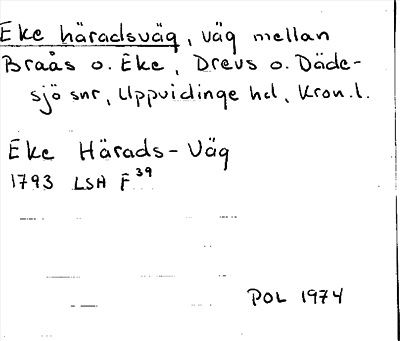 Eke häradsväg, väg mellan
Braås o. Eke, Drevs o. Däde-
sjö snr, Uppvidinge hd, Kron.l.
Eke Härads-Väg
1793 LSA F39
POL 1974